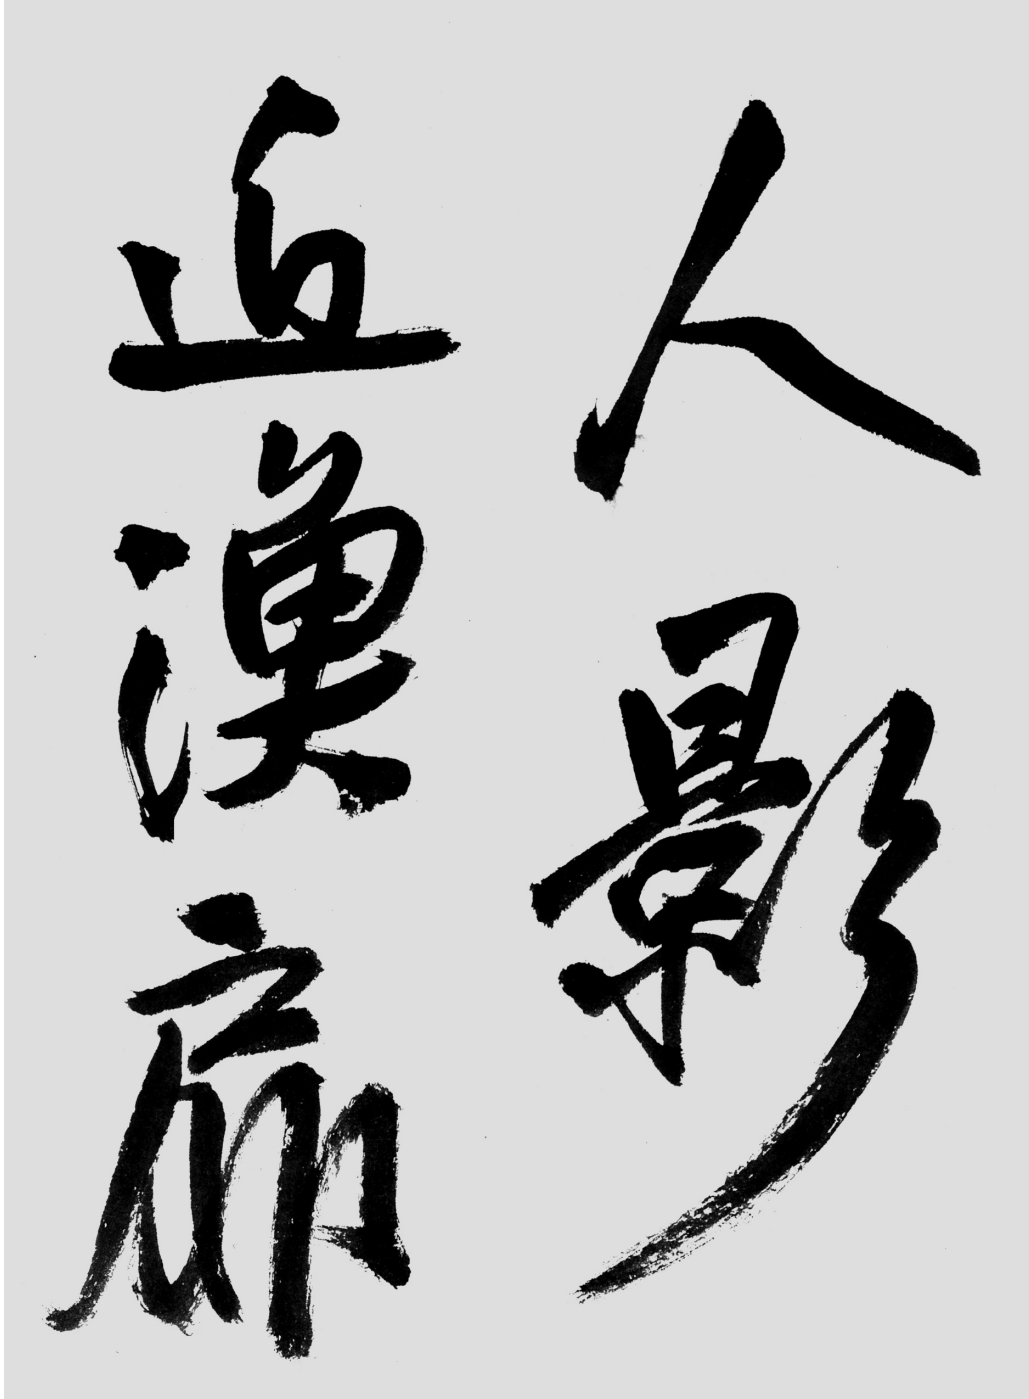 人影
近漁扉